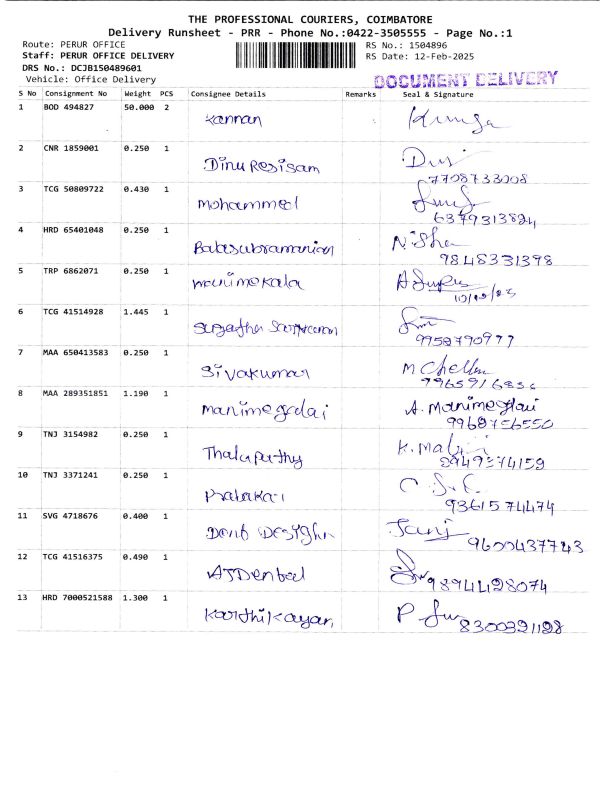 THE PROFESSIONAL COURIERS, COIMBATORE
Delivery Runsheet - PRR - Phone No.:0422-3505555 - Page No.:1
Route: PERUR OFFICE RS No.: 1504896
Staff: PERUR OFFICE DELIVERY RS Date: 12-Feb-2025
DRS No.: DCJB150489601
Vehicle: Office Delivery DOCUMENT DELIVERY
S No Consignment No Weight PCS Consignee Details Remarks Seal & Signature
1 BOD 494827 50.000 2 Kannan
2 CNR 1859001 0.250 1 Dinu Resisam
7708733008
3 TCG 50809722 0.430 1 Mohammed
6379313824
4 HRD 65401048 0.250 1 Balasubramanian N. Sha
9848331398
5 TRP 6862071 0.250 1 manimekala
6 TCG 41514928 1.445 1
9958790977
7 MAA 650413583 0.250 1 Sivakumar M Chella
8 MAA 289351851 1.190 1 manimegalai A. Manimeglai
9968756550
9 TNJ 3154982 0.250 1 Thalapathy
8949574159
10 TNJ 3371241 0.250 1 Prabakar
9361574474
11 SVG 4718676 0.400 1
9600437743
12 TCG 41516375 0.490 1
9894428074
13 HRD 7000521588 1.300 1 Karthikayan
8300321128